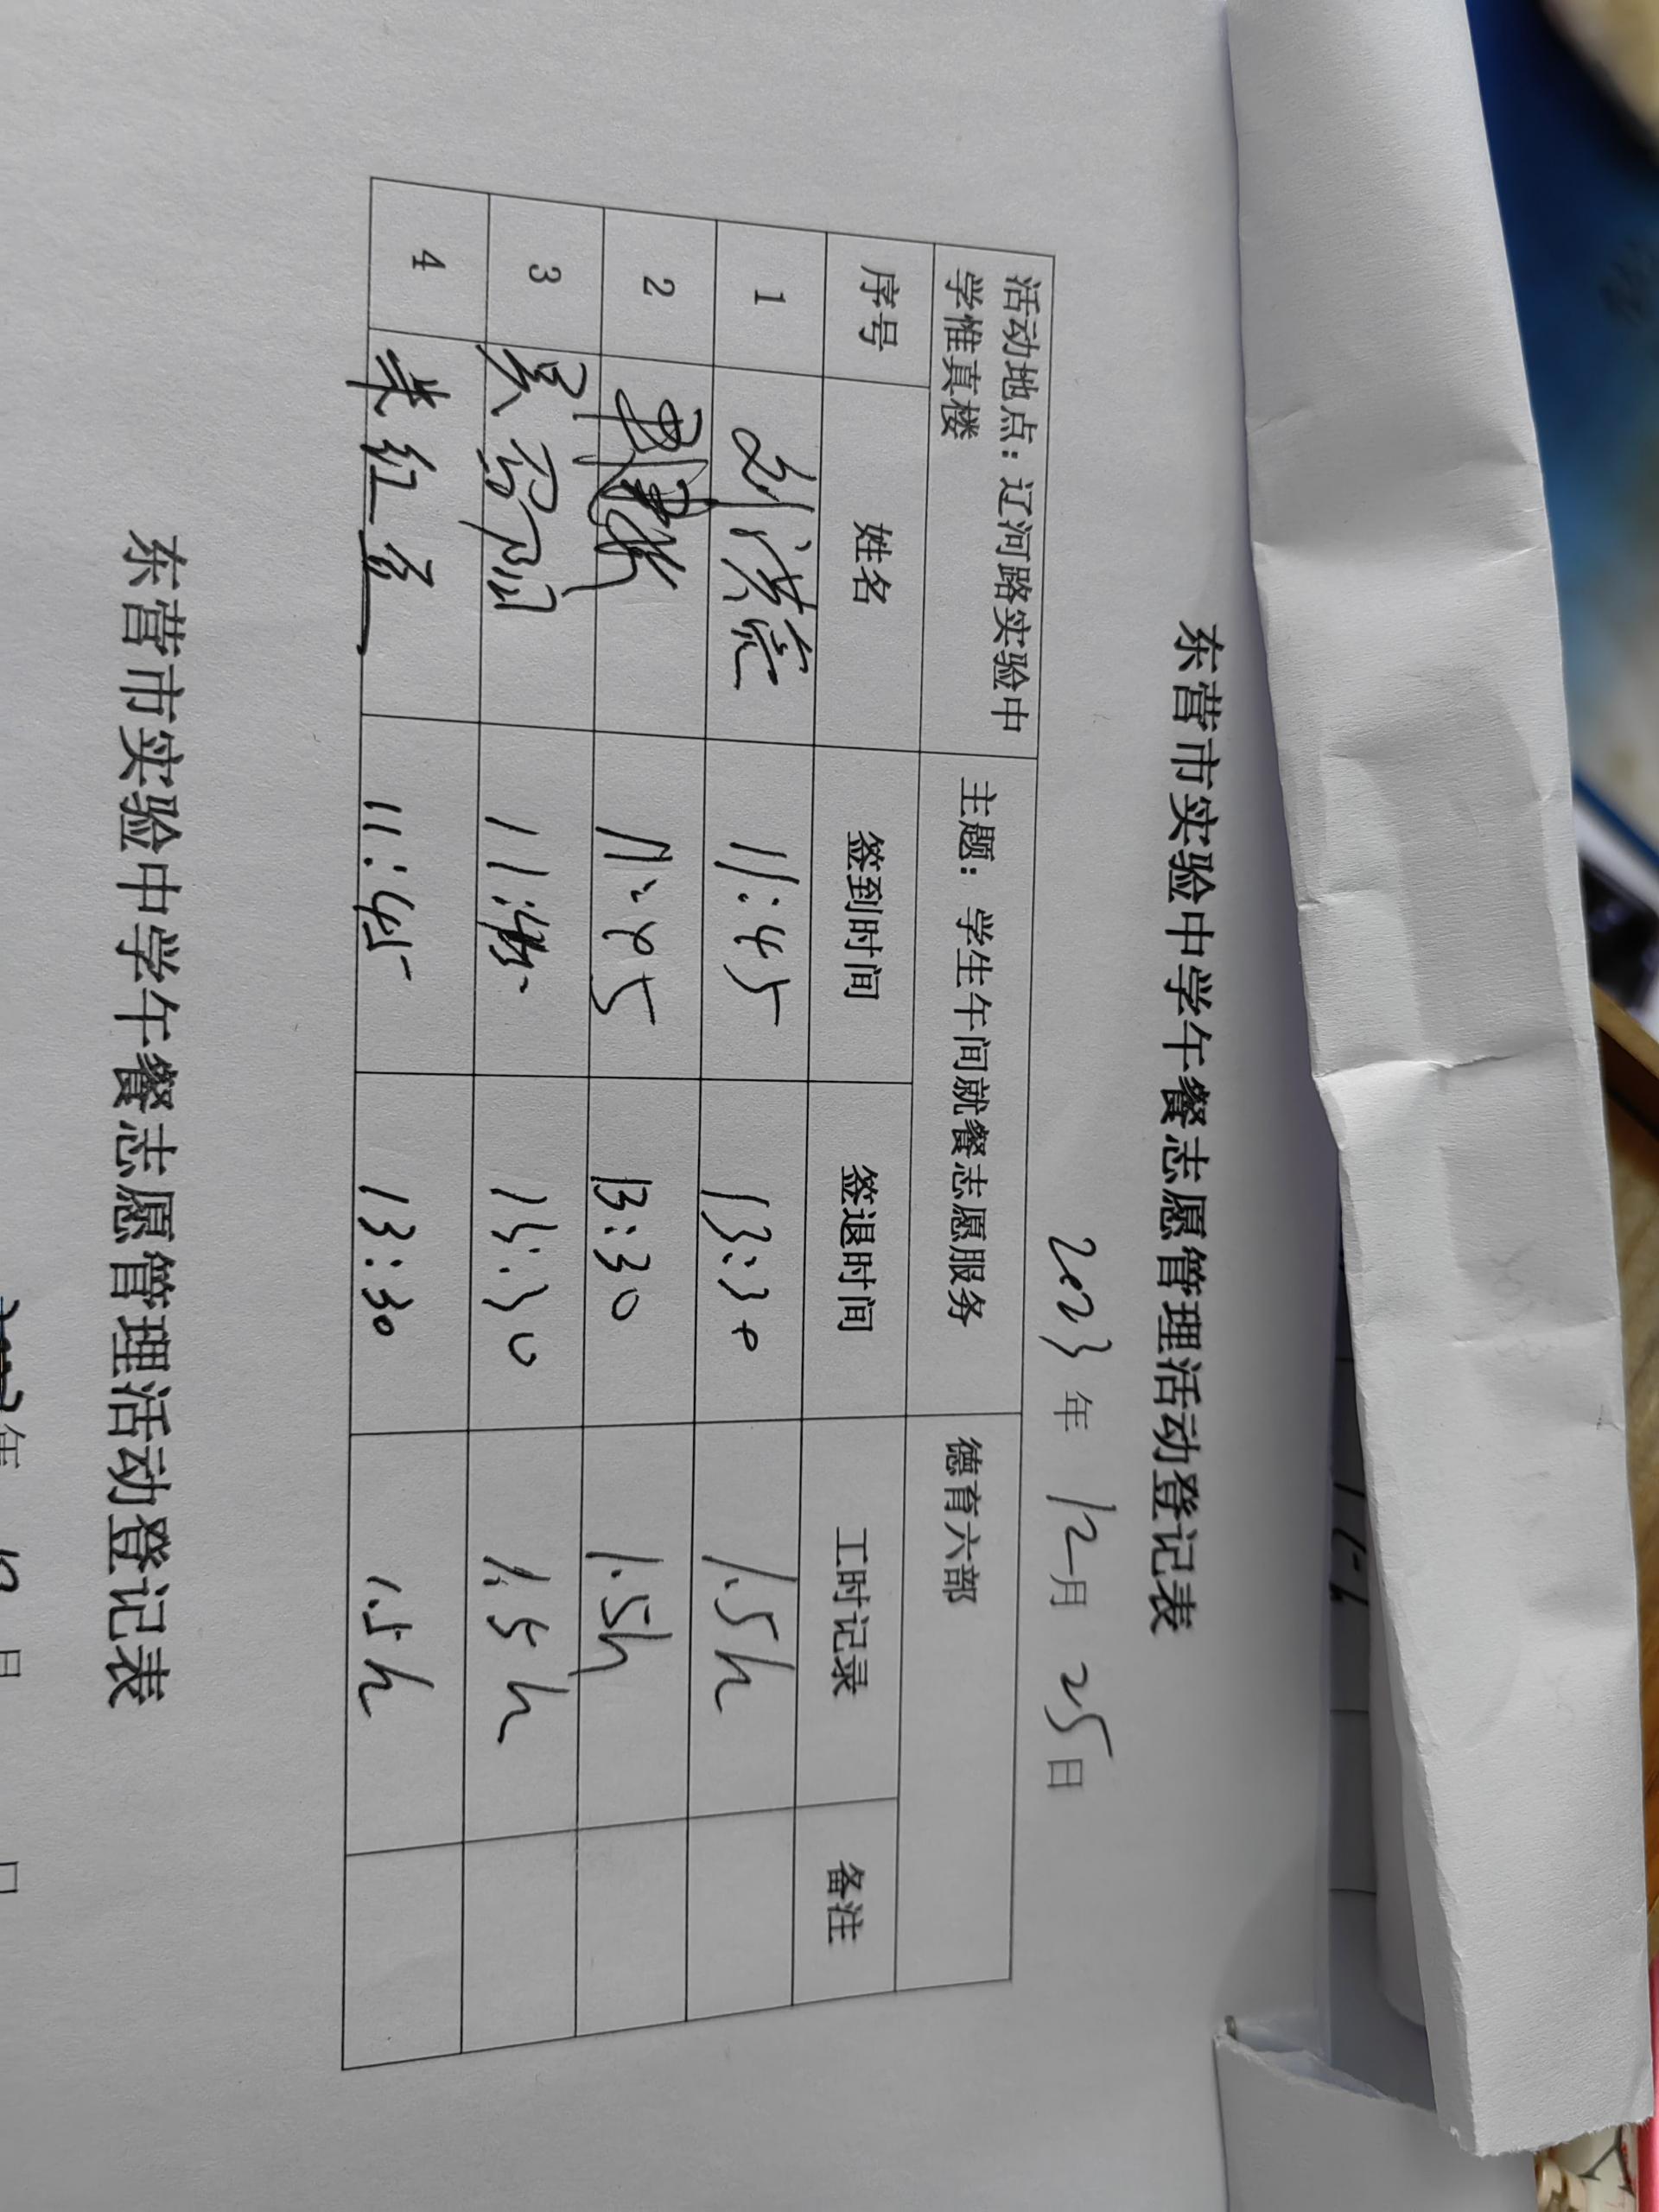 东营市实验中学午餐志愿管理活动登记表
2023年 12月 25日
活动地点：辽河路实验中学惟真楼 主题：学生午间就餐志愿服务 德育六部
序号 姓名 签到时间 签退时间 工时记录 备注
1 刘洪 11:45 13:30 1.5h
2 11:45 13:30 1.5h
3 吴 11:45 13:30 1.5h
4 红 11:45 13:30 1.5h
东营市实验中学午餐志愿管理活动登记表
年 12 月 日